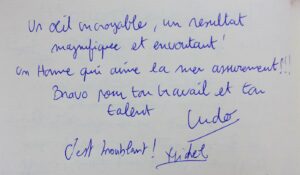 Un œil incroyable, un resultat
magnifique et envoutant !
un Homme qui aime la mer assurement !!!
Bravo pour ton travail et ton
talent
Ludo
C'est troublant !